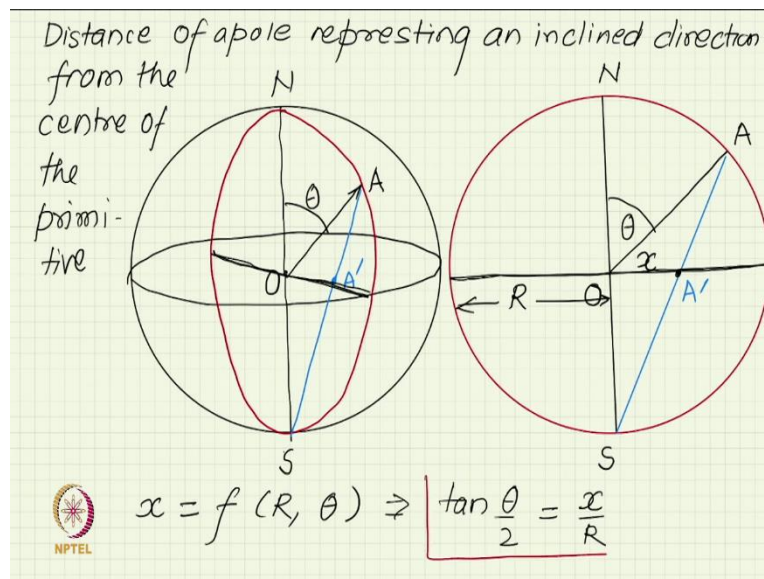 Distance of apole represting an inclined direction
from the
centre of
the
primi-
tive
N
θ
A
O
A'
S
N
A
θ
x
R
O
A'
S
x = f (R, θ) ⇒ tan θ/2 = x/R
NPTEL